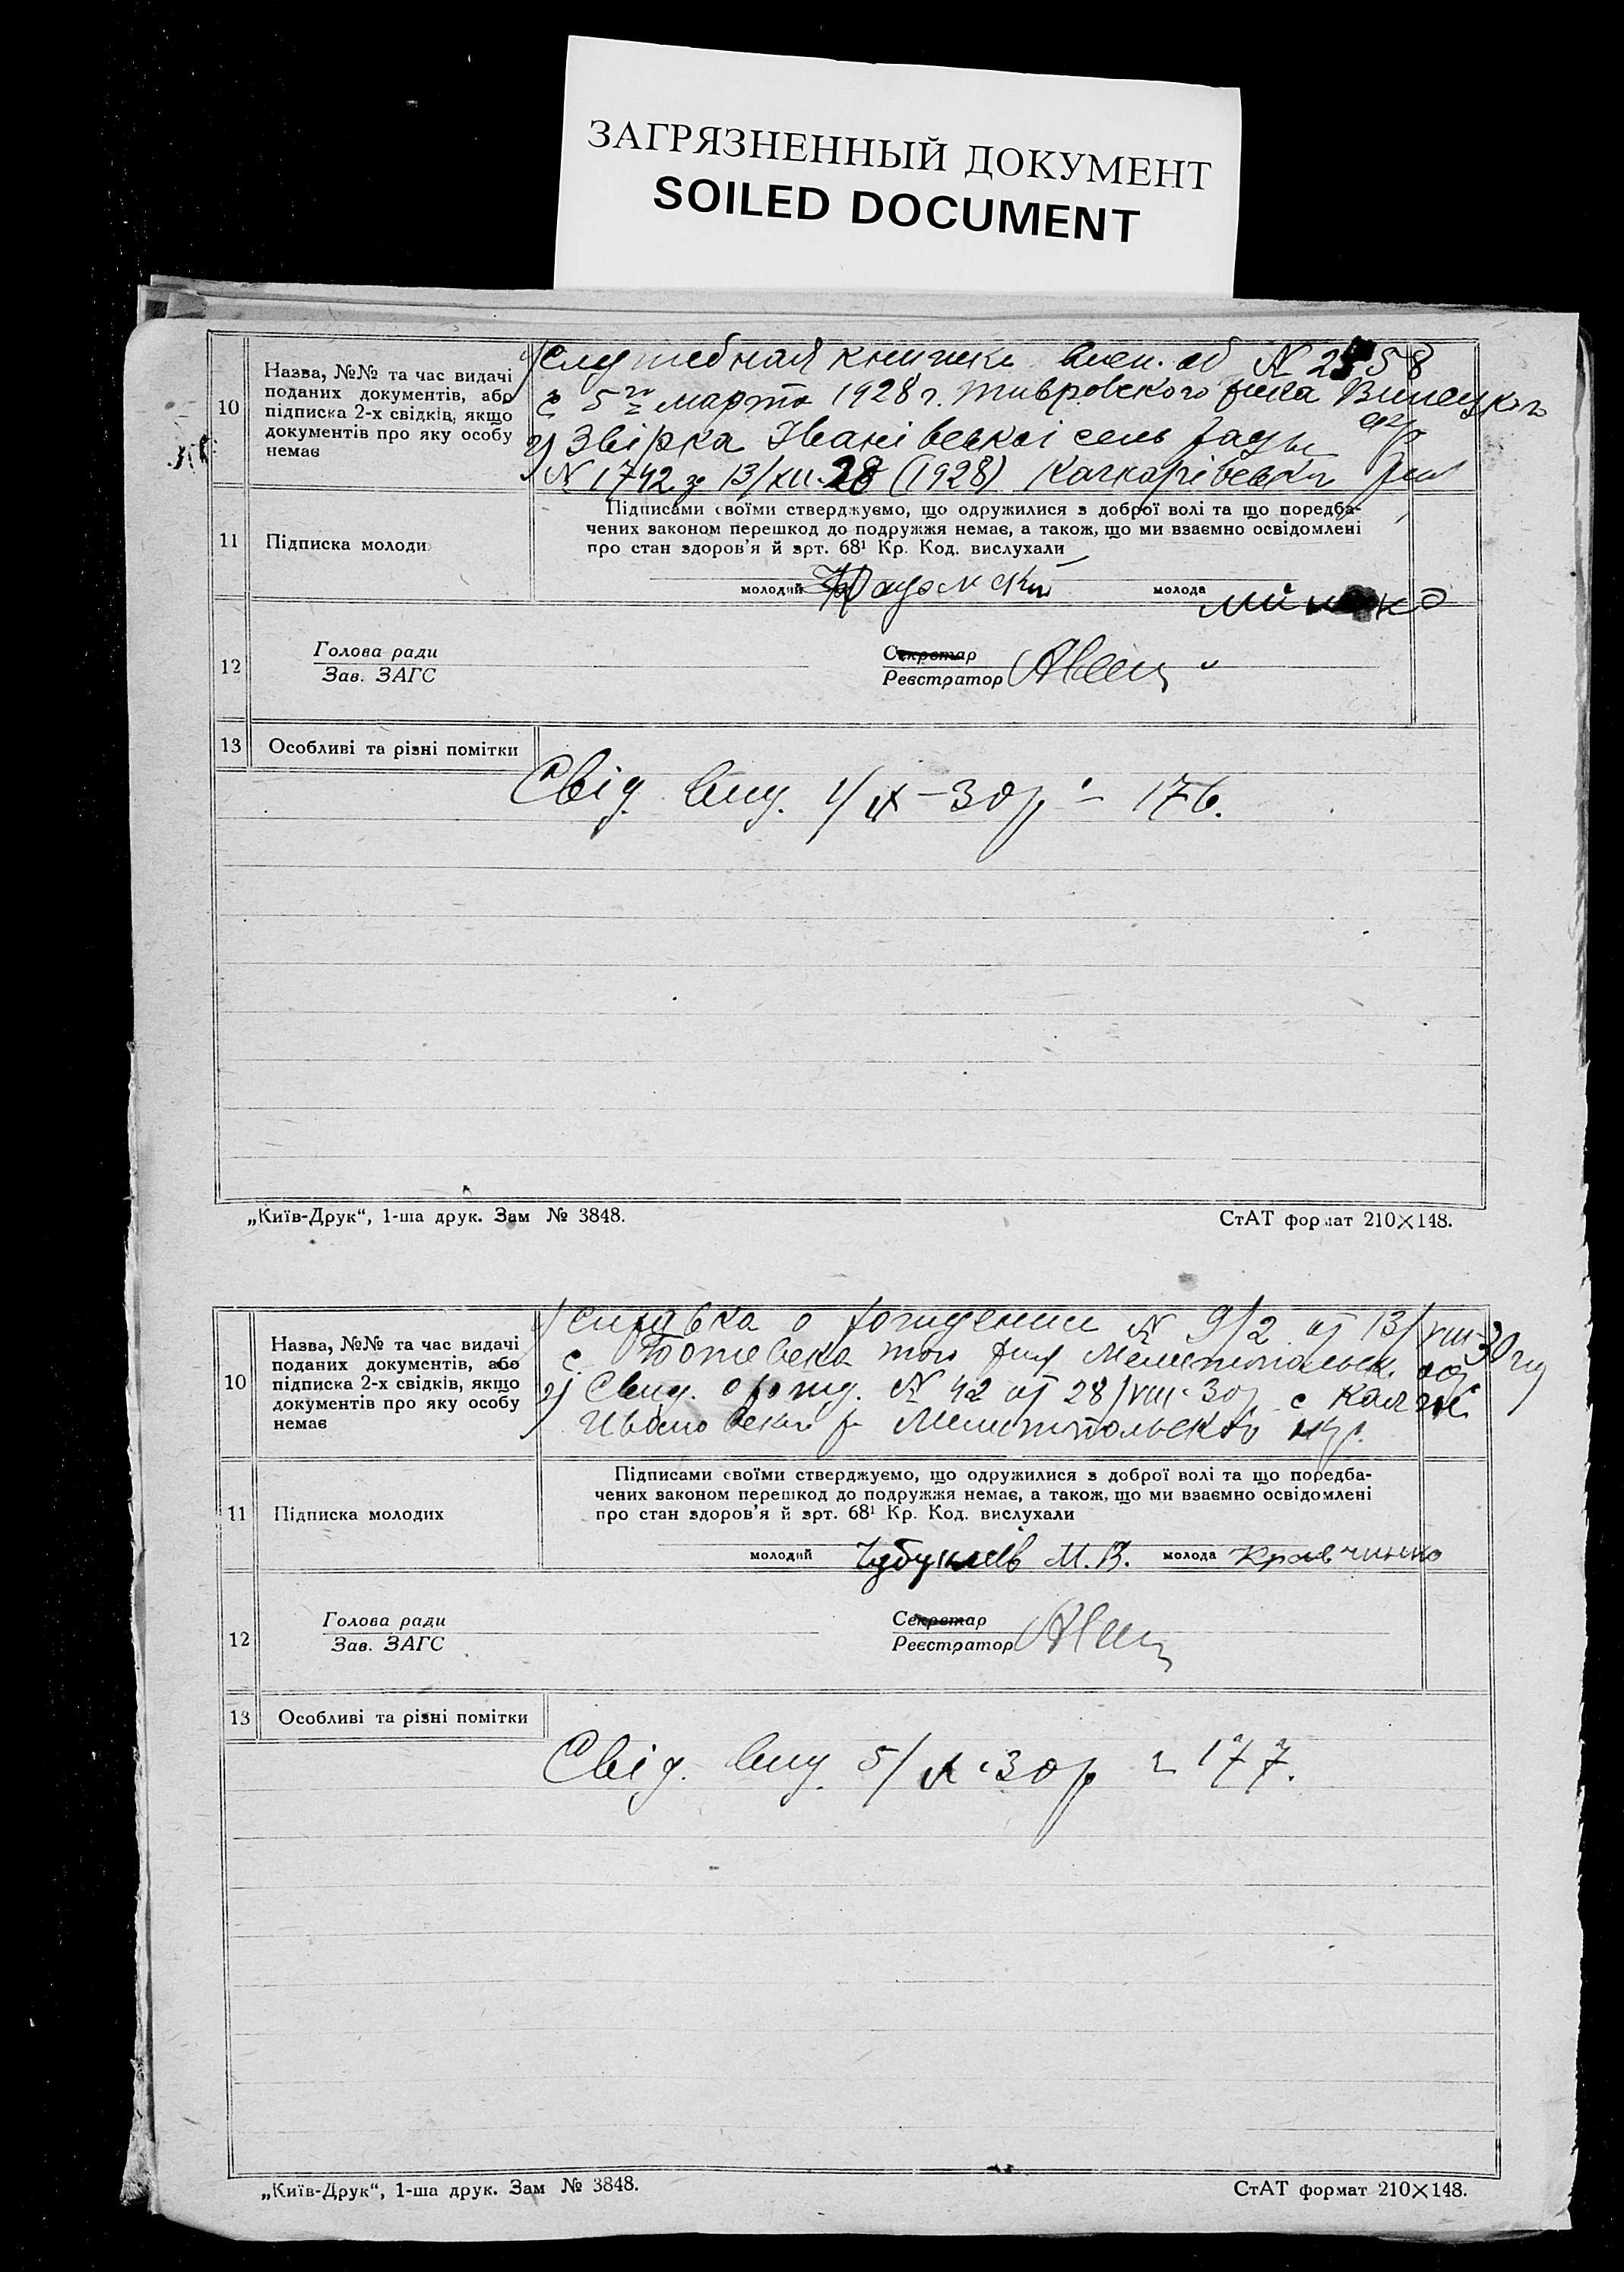 ЗАГРЯЗНЕННЫЙ ДОКУМЕНТ
SOILED DOCUMENT
10
Назва, №№ та час видачі
поданих документів, або
підписка 2-х свідків, якщо
документів про яку особу
немає
1) Служебная книжка воен. об № 58
с 5го марта 1928 г. Тивровского района Виницкого
окр
2) Звірка Іванівської сель ради
№ 1742 з 13/XII-28 (1928) Качкарівськ. рай
11
Підписка молоди
Підписами своїми стверджуємо, що одружилися з доброї волі та що поредба-
чених законом перешкод до подружжя немає, а також, що ми взаємно освідомлені
про стан здоров'я й арт. 68¹ Кр. Код. вислухали
молодий
молода
12
Голова ради
Зав. ЗАГС
Секретар
Реєстратор
13
Особливі та різні помітки
Свід. вид. 4/IX-30 р. 176.
„Київ-Друк“, 1-ша друк. Зам № 3848.
СтАТ формат 210×148.
10
Назва, №№ та час видачі
поданих документів, або
підписка 2-х свідків, якщо
документів про яку особу
немає
1) Справка о рождении № 9/2 от 13/VIII-30 г
с. рай Мелитопольск. окр
2) Свид. о рожд. № 42 от 28/VIII-30 с
Ивановский р. Мелитопольского окр.
11
Підписка молодих
Підписами своїми стверджуємо, що одружилися з доброї волі та що поредба-
чених законом перешкод до подружжя немає, а також, що ми взаємно освідомлені
про стан здоров'я й арт. 68¹ Кр. Код. вислухали
молодий М. В. молода
12
Голова ради
Зав. ЗАГС
Секретар
Реєстратор
13
Особливі та різні помітки
Свід. вид. 5/IX-30 р 177.
„Київ-Друк“, 1-ша друк. Зам № 3848.
СтАТ формат 210×148.